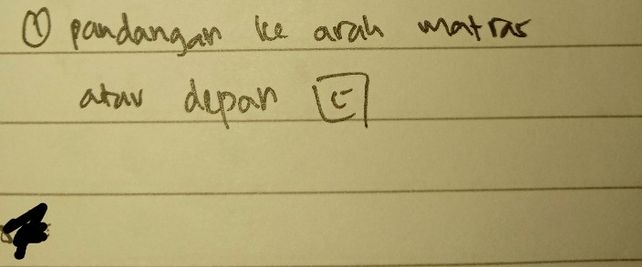 ① pandangan ke arah matras
atau depan C